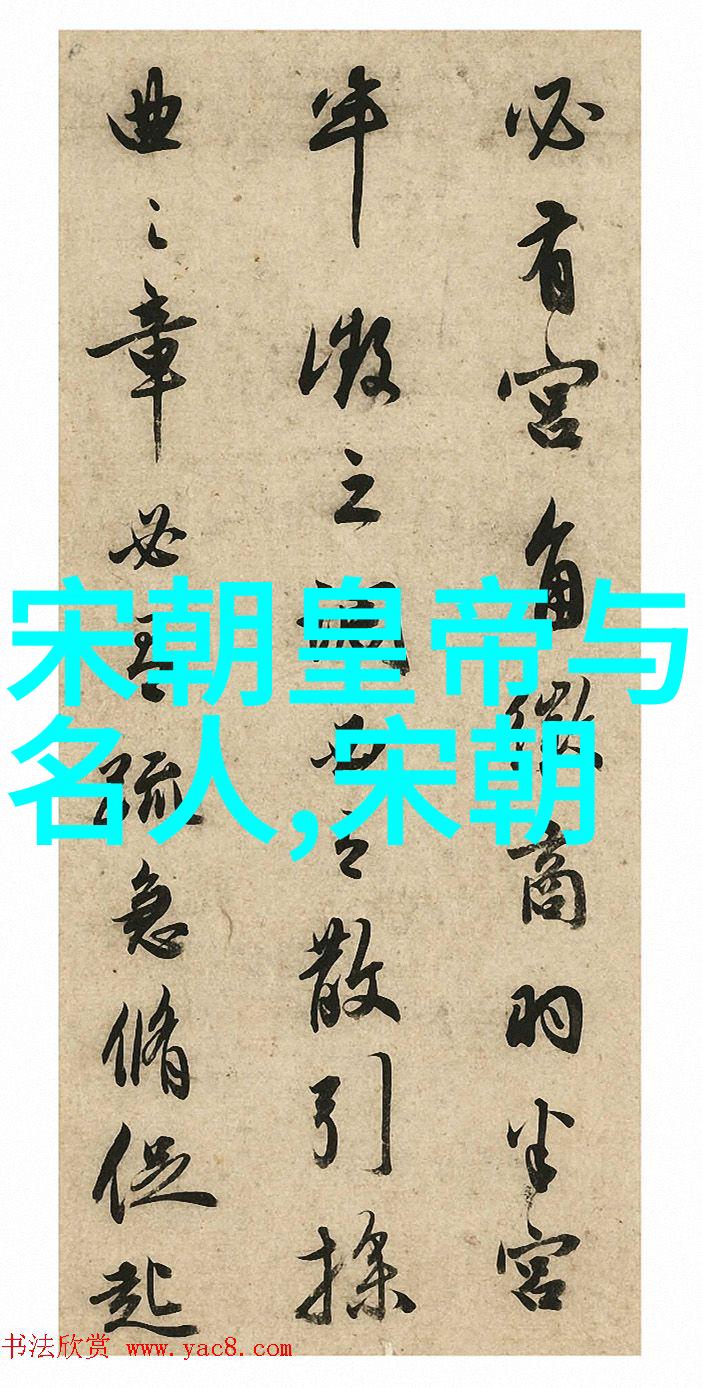 必有宫角徵商羽半宫
半徵之散引操
曲之章疏急脩促起
宋朝皇帝与
名人,宋朝
书法欣赏 www.yac8.com